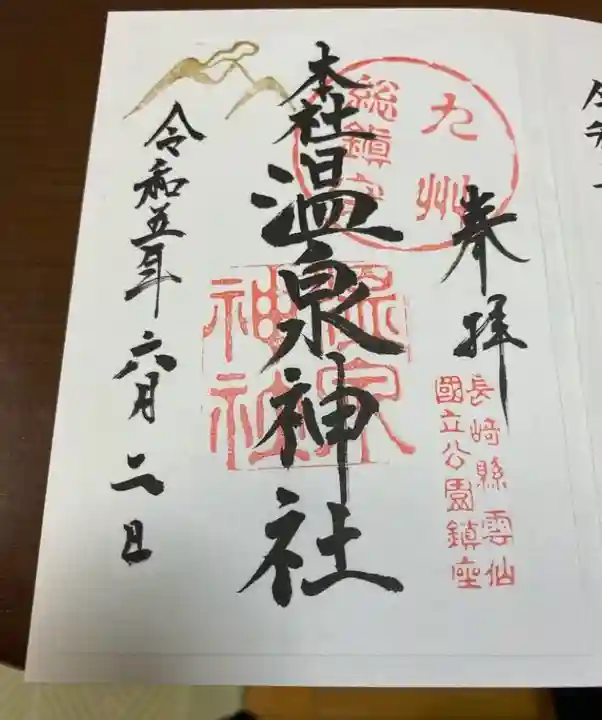 奉拝
長崎縣雲仙
國立公園鎮座
九州
総鎮守
本社温泉神社
温泉
神社
令和五年六月二日